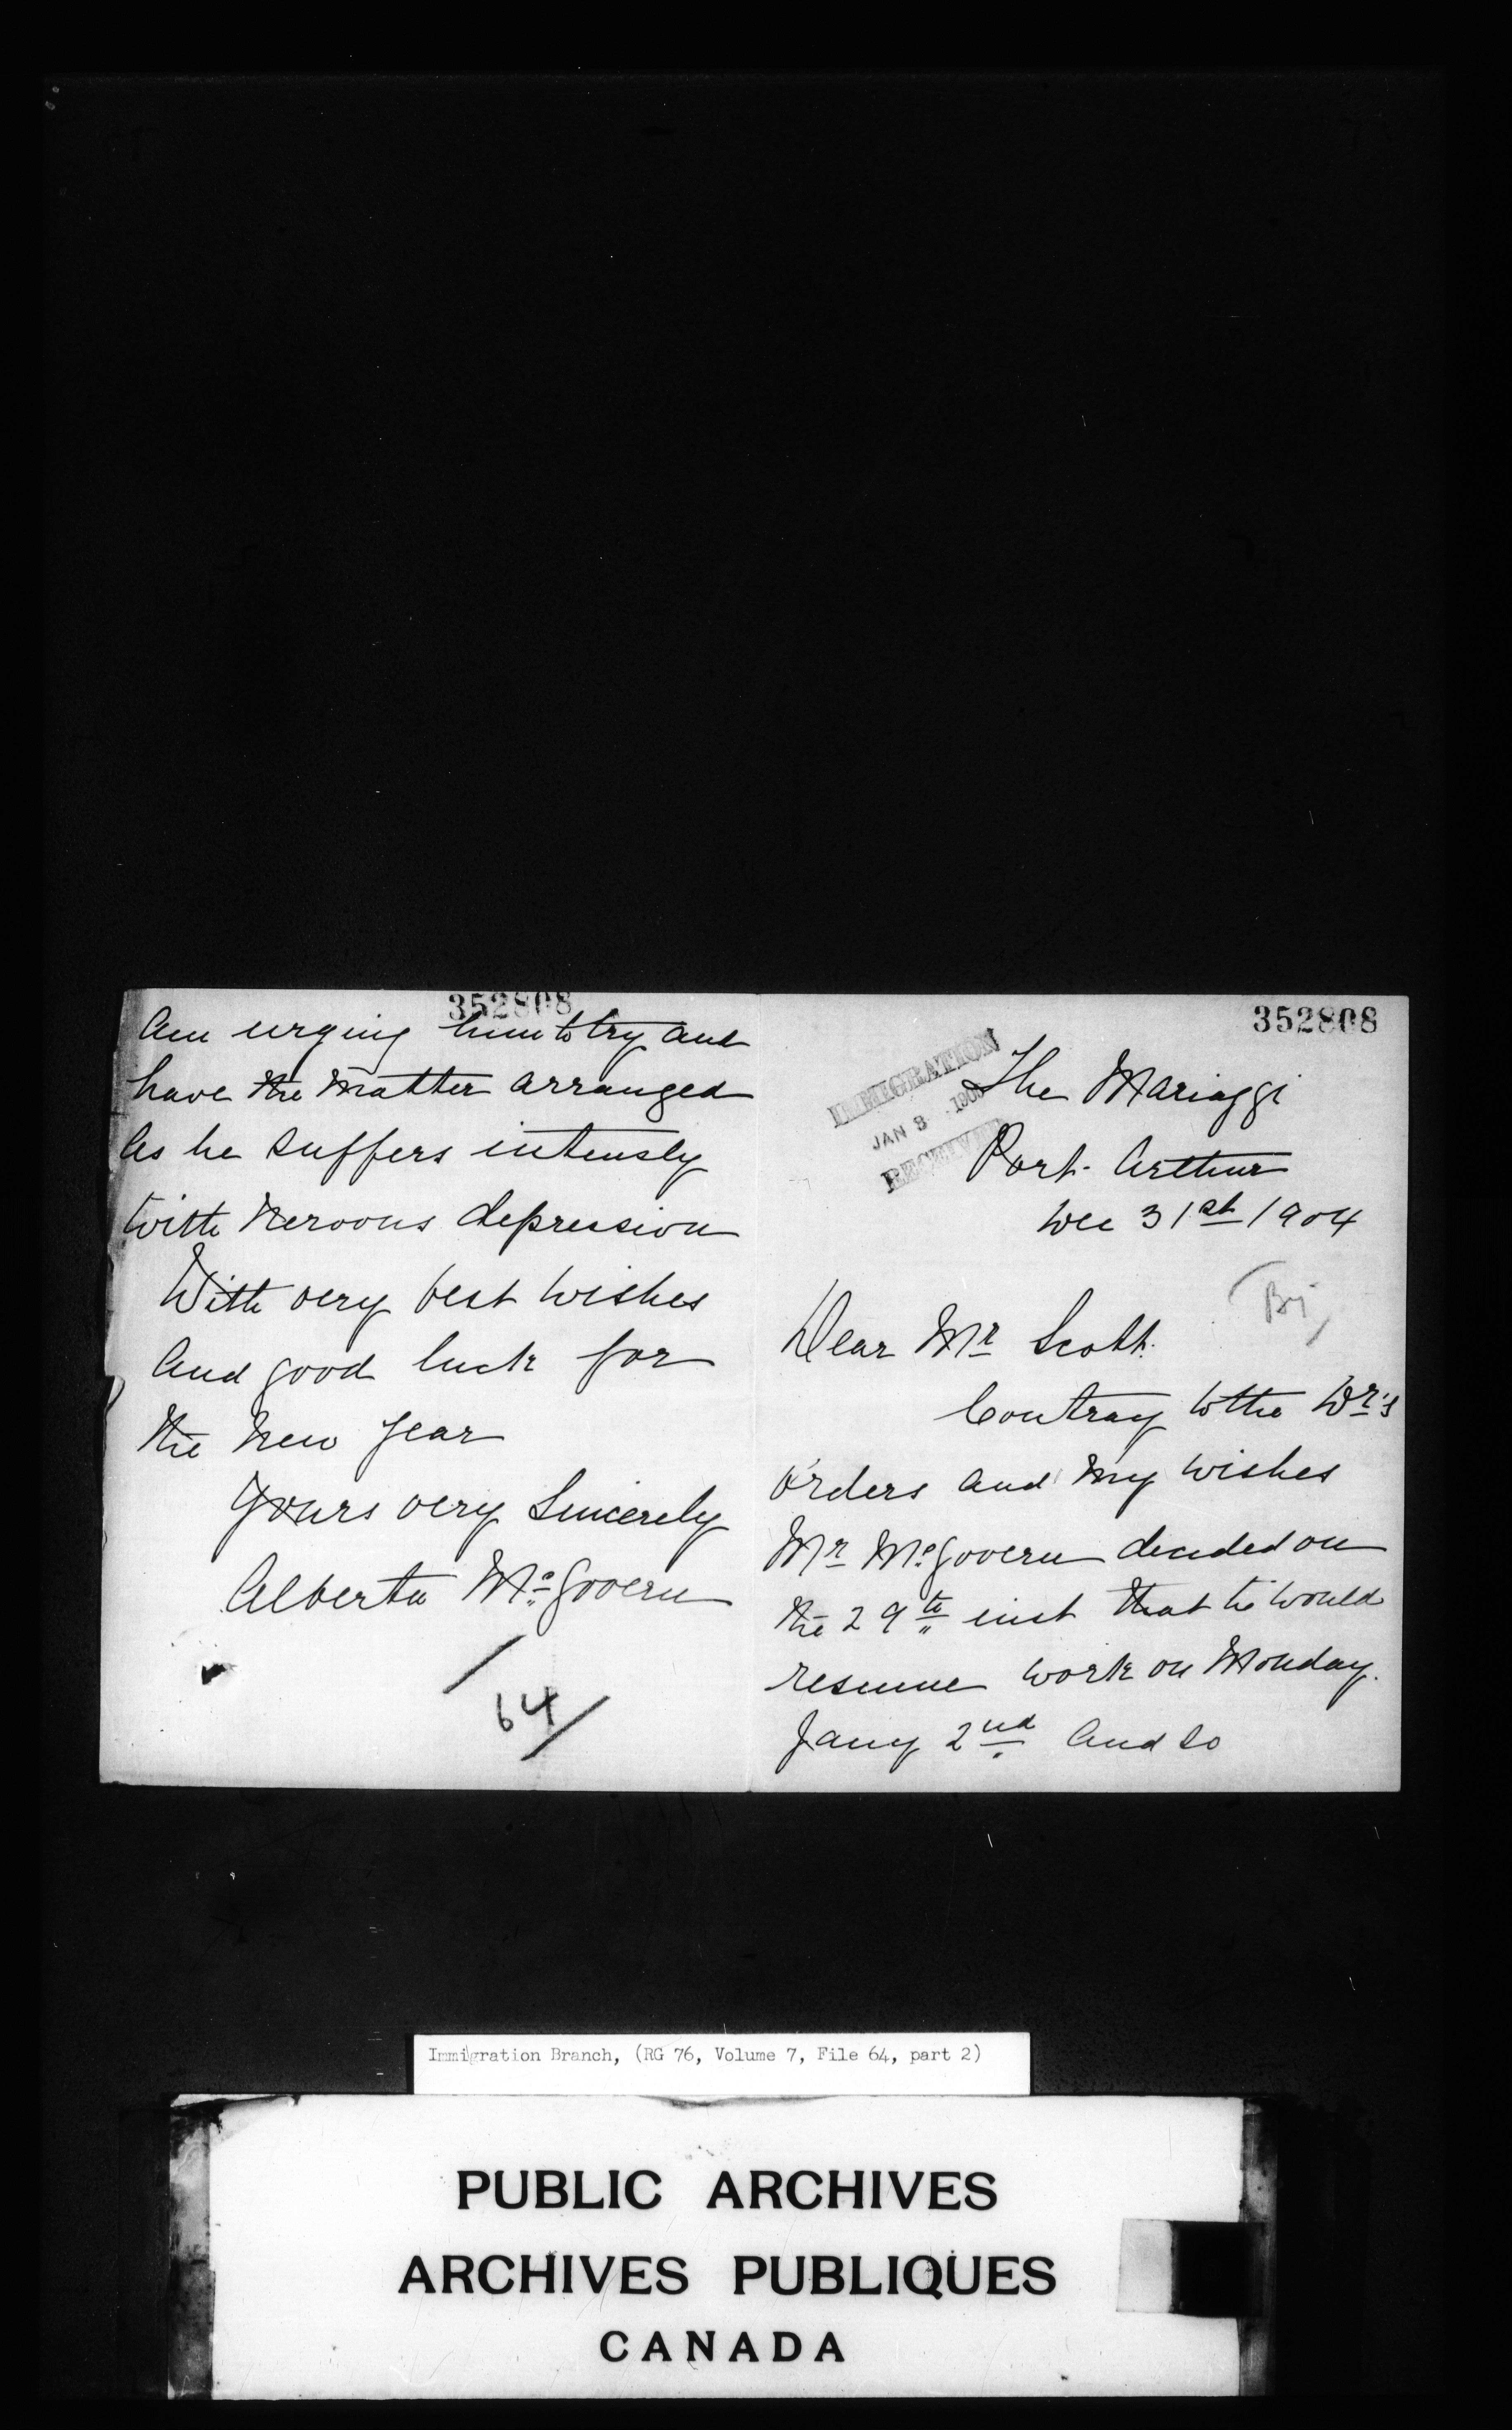 352808
am urging him to try and
have the matter arranged
as he suffers intensly
with nervous depression
With very best wishes
and good luck for
the New year
Yours very Sincerely
Alberta McGovern
64
352808
IMMIGRATION
JAN 3 1905
RECEIVED
The Mariaggi
Port Arthur
Dec 31st 1904
Dear Mr Scott.
Contray to the Dr's
orders and my wishes
Mr McGovern decided on
the 29th inst that he would
resume work on Monday.
Jany 2nd and so
Immigration Branch, (RG 76, Volume 7, File 64, part 2)
PUBLIC ARCHIVES
ARCHIVES PUBLIQUES
CANADA